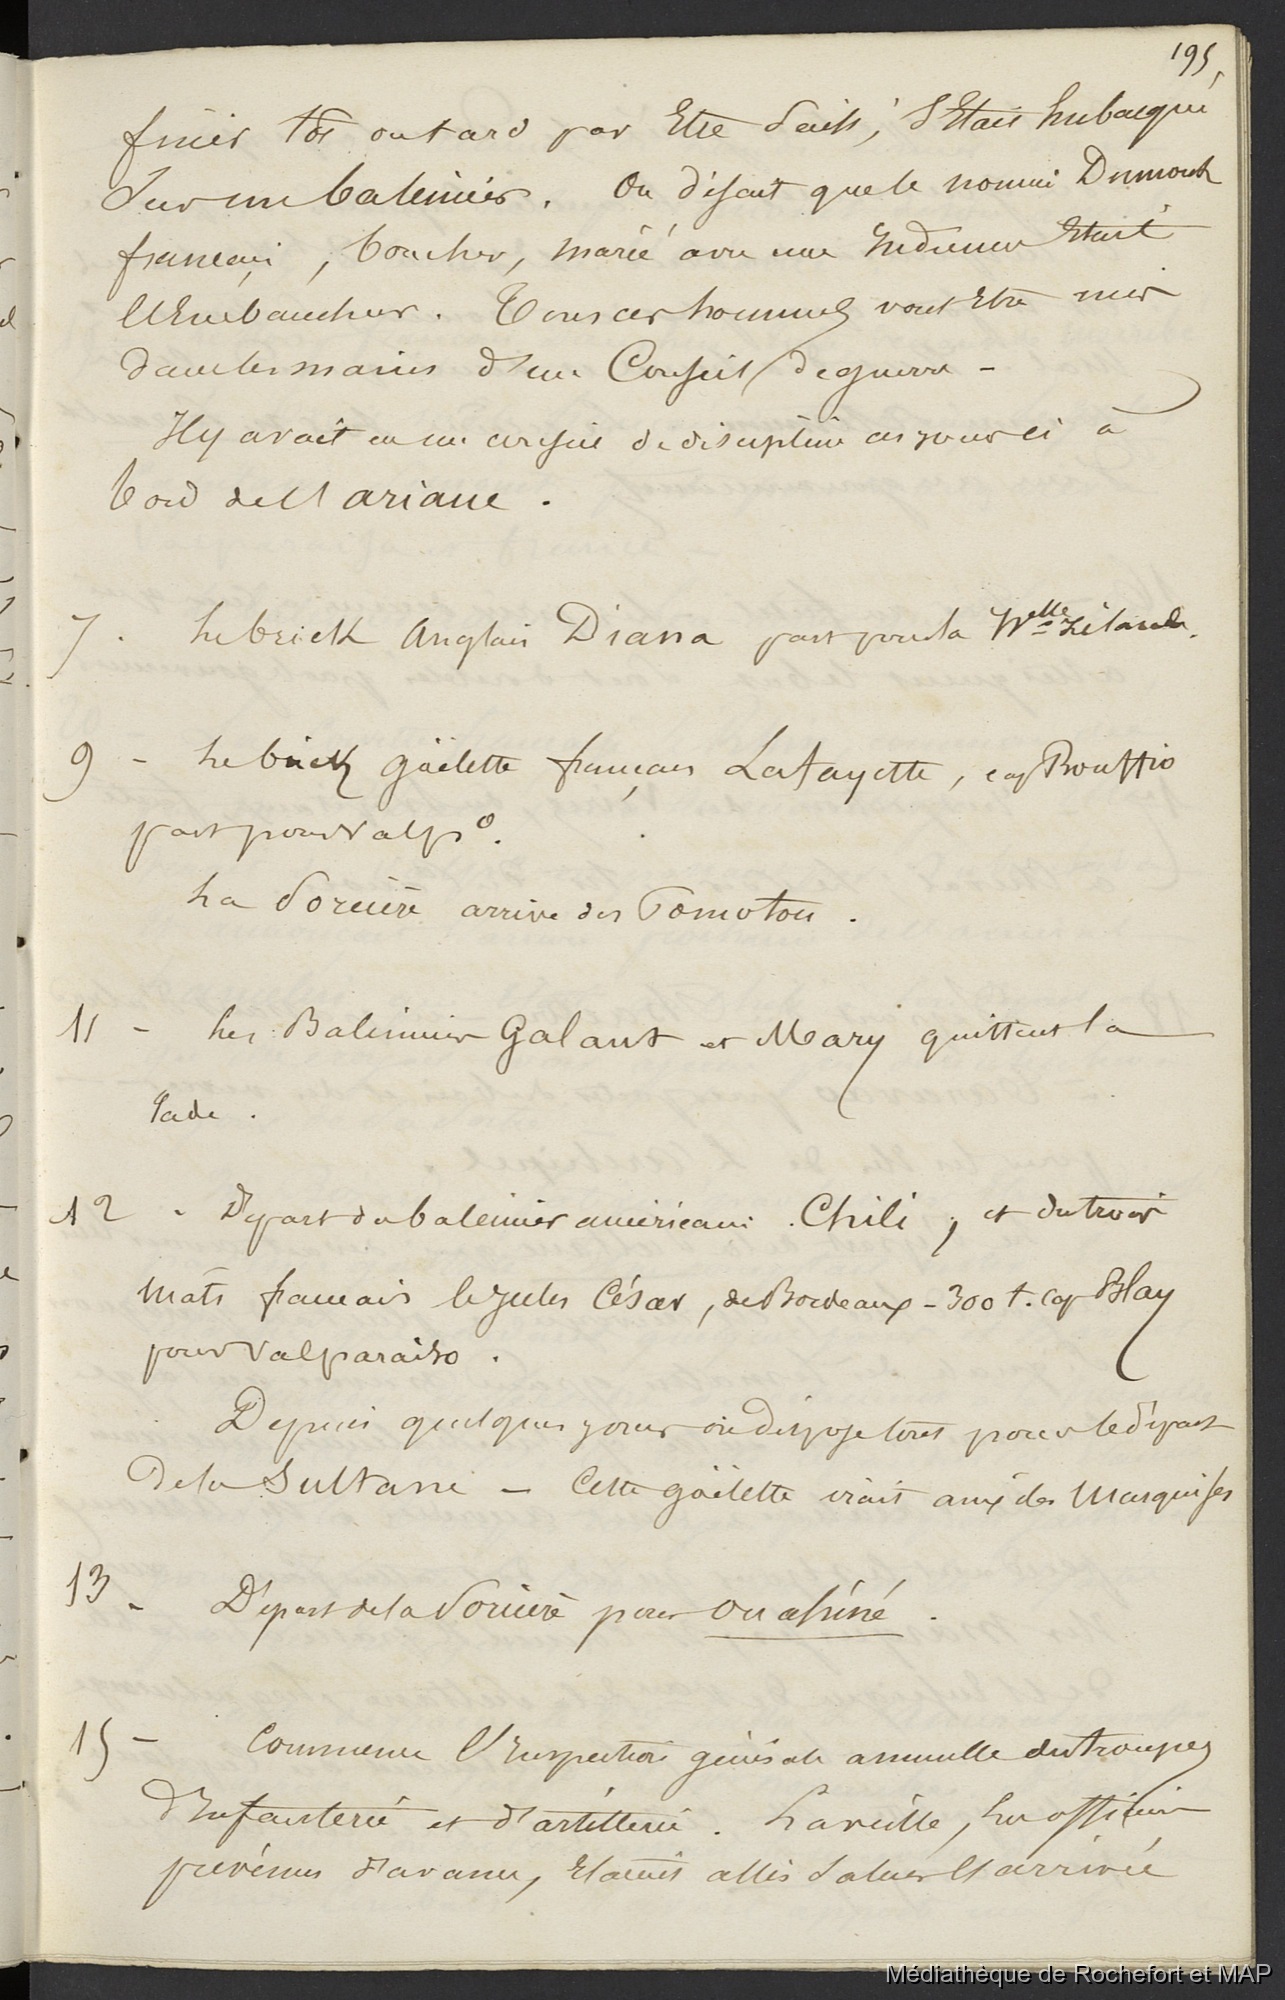 195
finir tôt ou tard par être saisi, s'était Embarqué
Sur un baleinier. On disait que le nommé Dumouch
français, boucher, marié avec une Indienne Etait
l'Embaucheur. Tous ces hommes vont Etre mis
dans les mains d'un Conseil de guerre -
Il y avait eu un conseil de discipline ces jours ci à
bord de l'ariane.
7. Le brick Anglais Diana part pour la Nlle Zélande.
9 - Le brick goëlette français Lafayette, cap Bouffio
part pour Valpo.
La Sorcière arrive des Pomotou.
11 - Les Baleinier Galant et Mary quittent la
rade.
12 - Départ du baleinier américain Chili, et du trois
mats francais le Jules César, de Bordeaux - 300 t. cap Blay
pour Valparaiso.
Depuis quelques jours on dispose tout pour le départ
de la Sultane - Cette goëlette irait aux iles Marquises
13 - Départ de la Sorcière pour Ouahiné.
15 - Commence l'Inspection générale annuelle des troupes
d'Infanterie et d'artillerie. La veille, les officiers
prévenus d'avance, Etaient allés saluer l'arrivée
Médiathèque de Rochefort et MAP